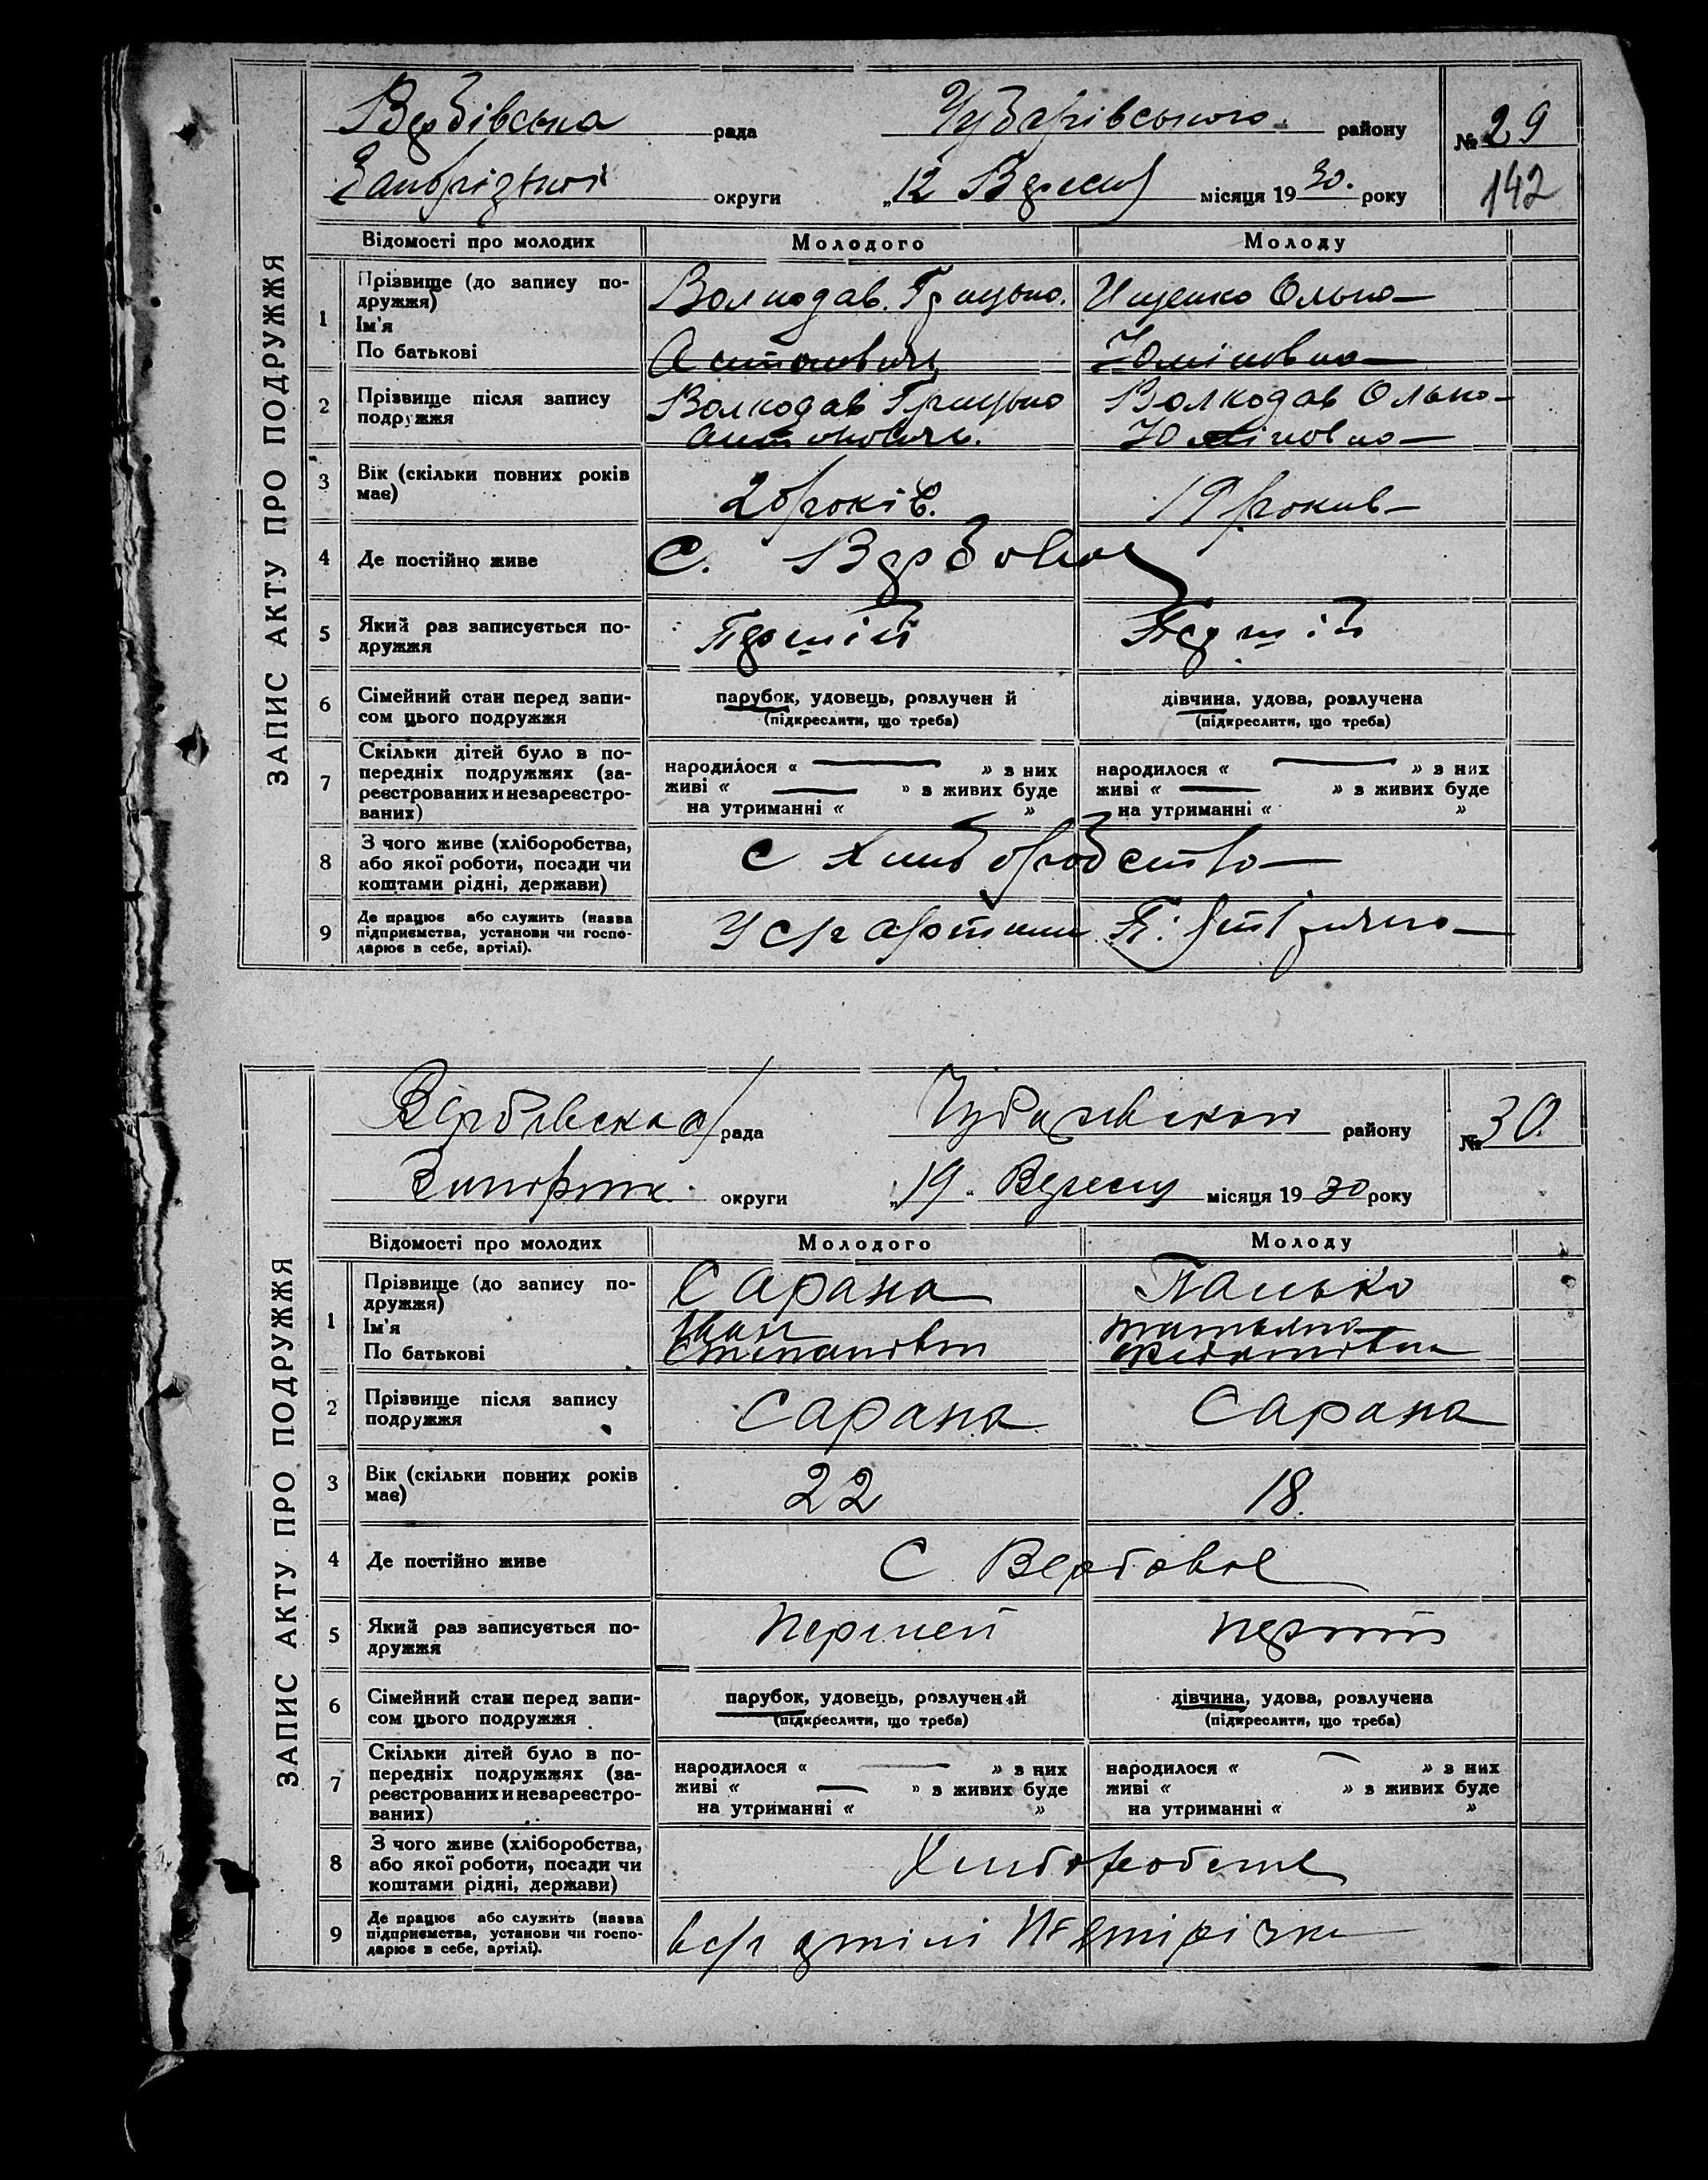 ЗАПИС АКТУ ПРО ПОДРУЖЖЯ
Вербівська рада Чубарівського району № 29
округи „12 Вересня місяця 19 30. року 142
Відомості про молодих Молодого Молоду
1 Прізвище (до запису по-
дружжя)
Ім'я
По батькові
Волкодав. Грицько. Ищенко Ольга
Антонович
2 Прізвище після запису
подружжя
Волкодав Грицько Волкодав Ольга
Антонович.
3 Вік (скільки повних років
має)
років. 19 рокив
4 Де постійно живе
С. Вербовое
5 Який раз записується по-
дружжя
Перший Перший
6 Сімейний стан перед запи-
сом цього подружжя
парубок, удовець, розлучен й дівчина, удова, розлучена
(підкреслити, що треба) (підкреслити, що треба)
7 Скільки дітей було в по-
передніх подружжях (за-
реєстрованих и незареєстро-
ваних)
народилося « » з них народилося « » з них
живі « » з живих буде живі « » з живих буде
на утриманні « » на утриманні « »
8 З чого живе (хліборобства,
або якої роботи, посади чи
коштами рідні, держави)
с хлиборобство
9 Де працює або служить (назва
підприємства, установи чи госпо-
дарює в себе, артілі).
У с/г артили
ЗАПИС АКТУ ПРО ПОДРУЖЖЯ
рада району № 30.
округи „19„ Вересня місяця 19 30 року
Відомості про молодих Молодого Молоду
1 Прізвище (до запису по-
дружжя)
Ім'я
По батькові
Сарана Панько
Иван Татьяна
Степанович Федотовна
2 Прізвище після запису
подружжя
Сарана Сарана
3 Вік (скільки повних років
має)
22 18.
4 Де постійно живе
С Вербовое
5 Який раз записується по-
дружжя
6 Сімейний стан перед запи-
сом цього подружжя
парубок, удовець, розлучений дівчина, удова, розлучена
(підкреслити, що треба) (підкреслити, що треба)
7 Скільки дітей було в по-
передніх подружжях (за-
реєстрованих и незареєстро-
ваних)
народилося « » з них народилося « » з них
живі « » з живих буде живі « » з живих буде
на утриманні « » на утриманні « »
8 З чого живе (хліборобства,
або якої роботи, посади чи
коштами рідні, держави)
9 Де працює або служить (назва
підприємства, установи чи госпо-
дарює в себе, артілі).
в с/г артілі